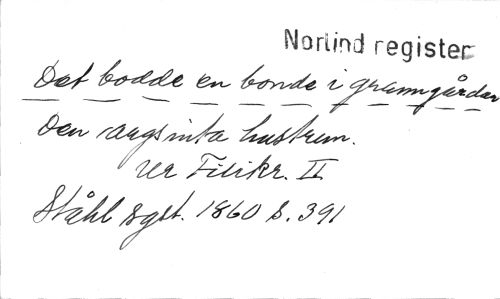 Norlind register
Det bodde en bonde i granngården
Den argsinta hustrun.
ur Filikr. II
Ståhl sgst. 1860 S. 391